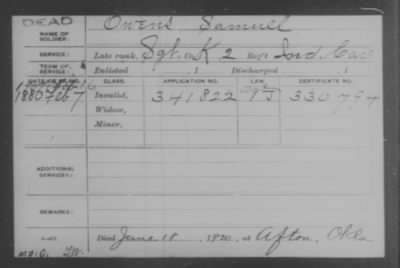 DEAD
NAME OF SOLDIER:
Owens, Samuel
SERVICE:
Late rank, Sgt. Co. K 2 Reg't Ind Cav
TERM OF SERVICE:
Enlisted , 1 Discharged , 1
DATE OF FILING. CLASS. APPLICATION NO. LAW. CERTIFICATE NO.
1880 Feb 7 Invalid, 341822 330794
Widow,
Minor,
ADDITIONAL SERVICES:
REMARKS:
Died June 18, 1920, at Afton, Okla